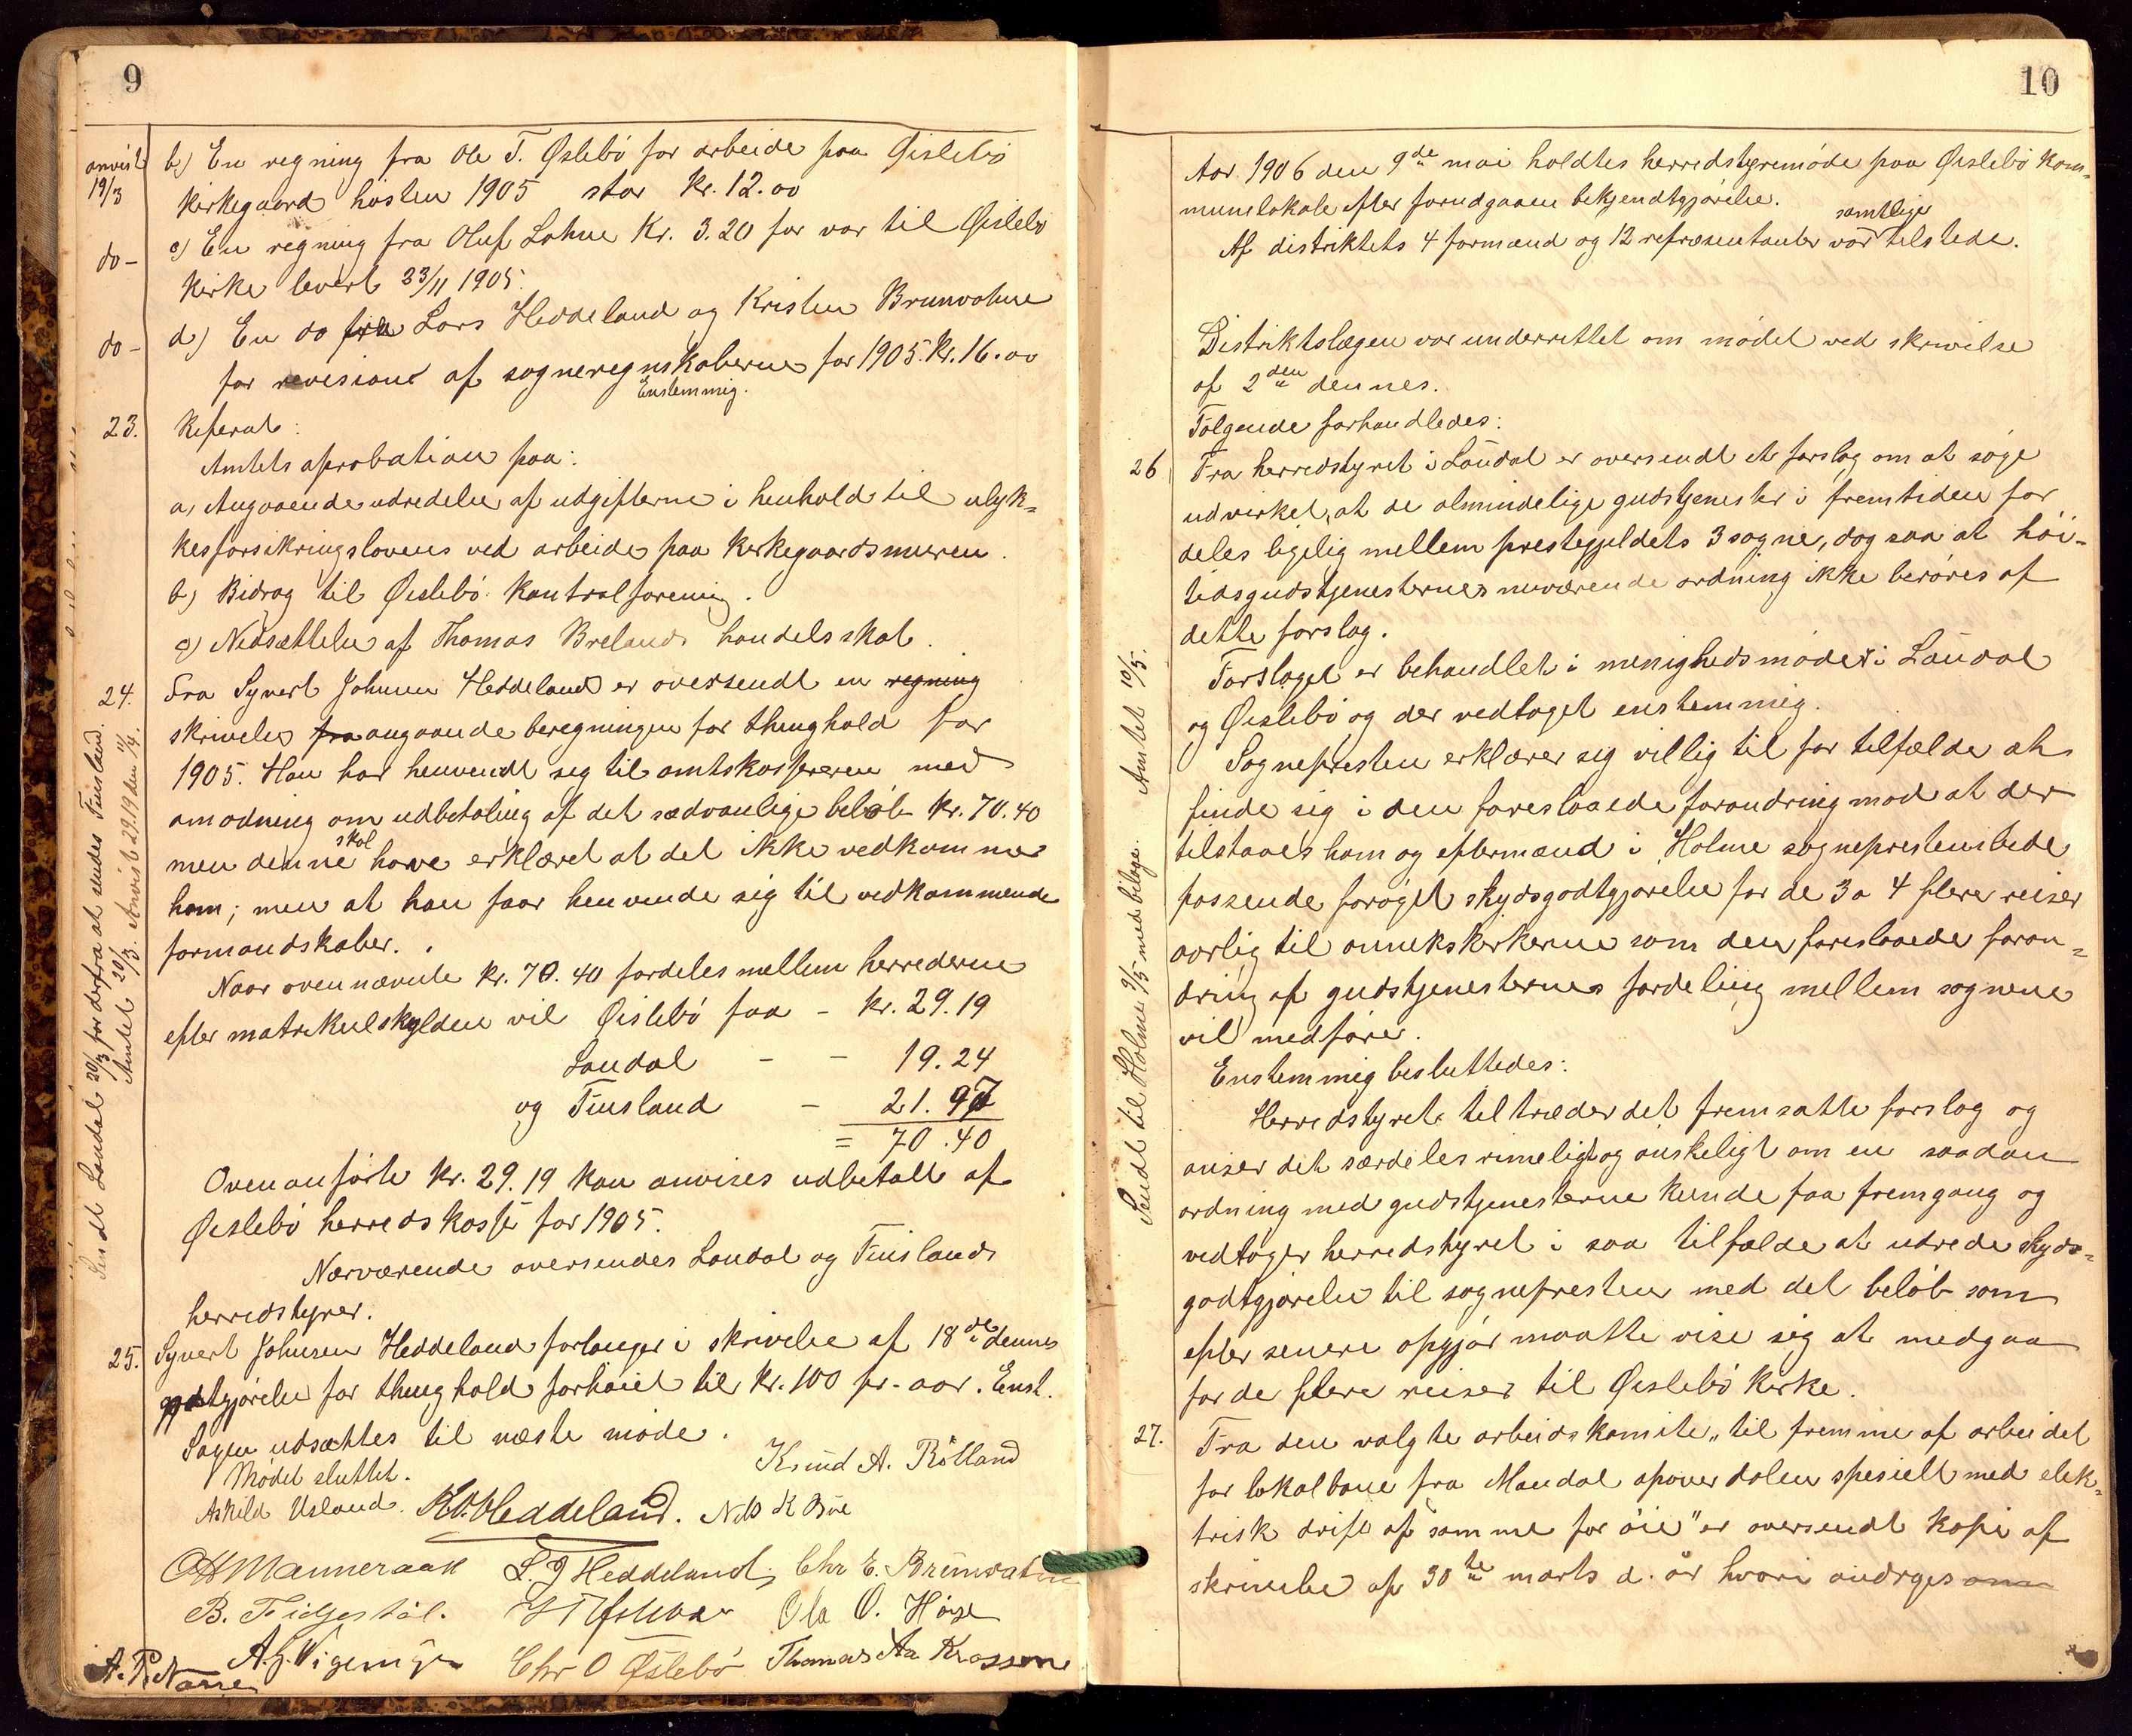 9
anvist
19/3
b) En regning fra Ole T. Øslebö for arbeide paa Øislebö
kirkegaard hösten 1905 stor Kr. 12.00
do -
c) En regning fra Oluf Lohne Kr. 3.20 for var til Øislebö
kirke levert 23/11 1905.
do -
d) En do fra Lars Heddeland og Kristen Brunvatne
for revision af sogneregnskaberne for 1905. Kr. 16.00
Enstemmig.
23.
Referat:
Amtets aprobation paa:
a, Angaaende udredelse af udgifterne i henhold til ulyk-
kesforsikringslovens ved arbeide paa kirkegaardsmuren.
b) Bidrag til Øislebö kontrolforening.
c) Nedsættelse af Thomas Brelands handelsskat.
24.
Fra Syvert Johnsen Heddeland er oversendt en regning
skrivelse fra angaaende beregningen for thinghold for
1905. Han har henvendt sig til amtskassereren med
anmodning om udbetaling af det sædvanlige belöb Kr. 70.40
men denne skal have erklæret at det ikke vedkommer
ham; men at han faar henvende sig til vedkommende
formandskaber.
Naar ovennævnte kr. 70.40 fordeles mellem herrederne
efter matrikulskylden vil Øislebö faa - kr. 29.19
Laudal - - 19.24
og Finsland - 21.97
= 70.40
Ovenanförte kr. 29.19 kan anvises udbetalt af
Øislebö herredskasse for 1905.
Nærværende oversendes Laudal og Finslands
herredstyrer.
Sendt Laudal 20/3 for derfra at sendes Finsland.
Amtet 20/3. Anvist 29.19 den 11/4.
25.
Syvert Johnsen Heddeland forlanger i skrivelse af 18de dennes
godtgjörelse for thinghold forhöiet til kr. 100 pr. aar. Enst.
Sagen udsættes til næste möde.
Mödet sluttet.
Knud A. Rölland
Askild Usland. K. O. Heddeland. Nils K Büe
O H Manneraak L. J Heddeland, Chr E. Brunvatne
B. Fidjestöl. Ola O. Höye
A. G. Vigemyr Chr O Øslebö Thomas Aa Krossen
10
Aar 1906 den 9de mai holdtes herredstyremöde paa Øislebö kom-
munelokale efter forudgaaen bekjendtgjörelse.
Af distriktets 4 formænd og 12 repræsentanter var samtlige tilstede.
Distriktslægen var underrettet om mödet ved skrivelse
af 2den dennes.
Fölgende forhandledes:
26
Fra herredstyret i Laudal er oversendt et forslag om at söge
udvirket, at de almindelige gudstjenester i fremtiden for
deles ligelig mellem prestegjeldets 3 sogne, dog saa at höi-
tidsgudstjenesternes nuværende ordning ikke beröres af
dette forslag.
Forslaget er behandlet i menighedsmöder i Laudal
og Øislebö og der vedtaget enstemmig.
Sognepresten erklærer sig villig til for tilfælde at
finde sig i den foreslaaede forandring mod at der
tilstaaes ham og eftermænd i Holme sogneprestembede
passende foröget skydsgodtgjörelse for de 3 a 4 flere reiser
aarlig til annekskirkerne som den foreslaaede foran-
dring af gudstjenesternes fordeling mellem sognene
vil medföre.
Enstemmig besluttedes:
Herredstyret tiltræder det fremsatte forslag og
anser det særdeles rimeligt og önskeligt om en saadan
ordning med gudstjenesterne kunde faa fremgang og
vedtager herredstyret i saa tilfælde at udrede skyds-
godtgjörelse til sognepresten med det belöb som
efter senere opgjör maatte vise sig at medgaa
for de flere reiser til Øislebö kirke.
Sendt til Holme 9/5 med bilage. Amtet 10/5.
27.
Fra den valgte arbeidskomite „til fremme af arbeidet
for lokalbane fra Mandal opover dalen spesielt med elek-
trisk drift af samme for öie" er oversendt kopi af
skrivelse af 30te marts d. år hvori andrages om